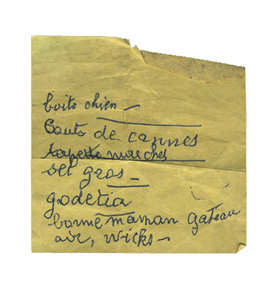 boite chien —
Bouts de cannes
tapette mouches
sel gros —
godetia
bonne maman gateau
air, wicks —